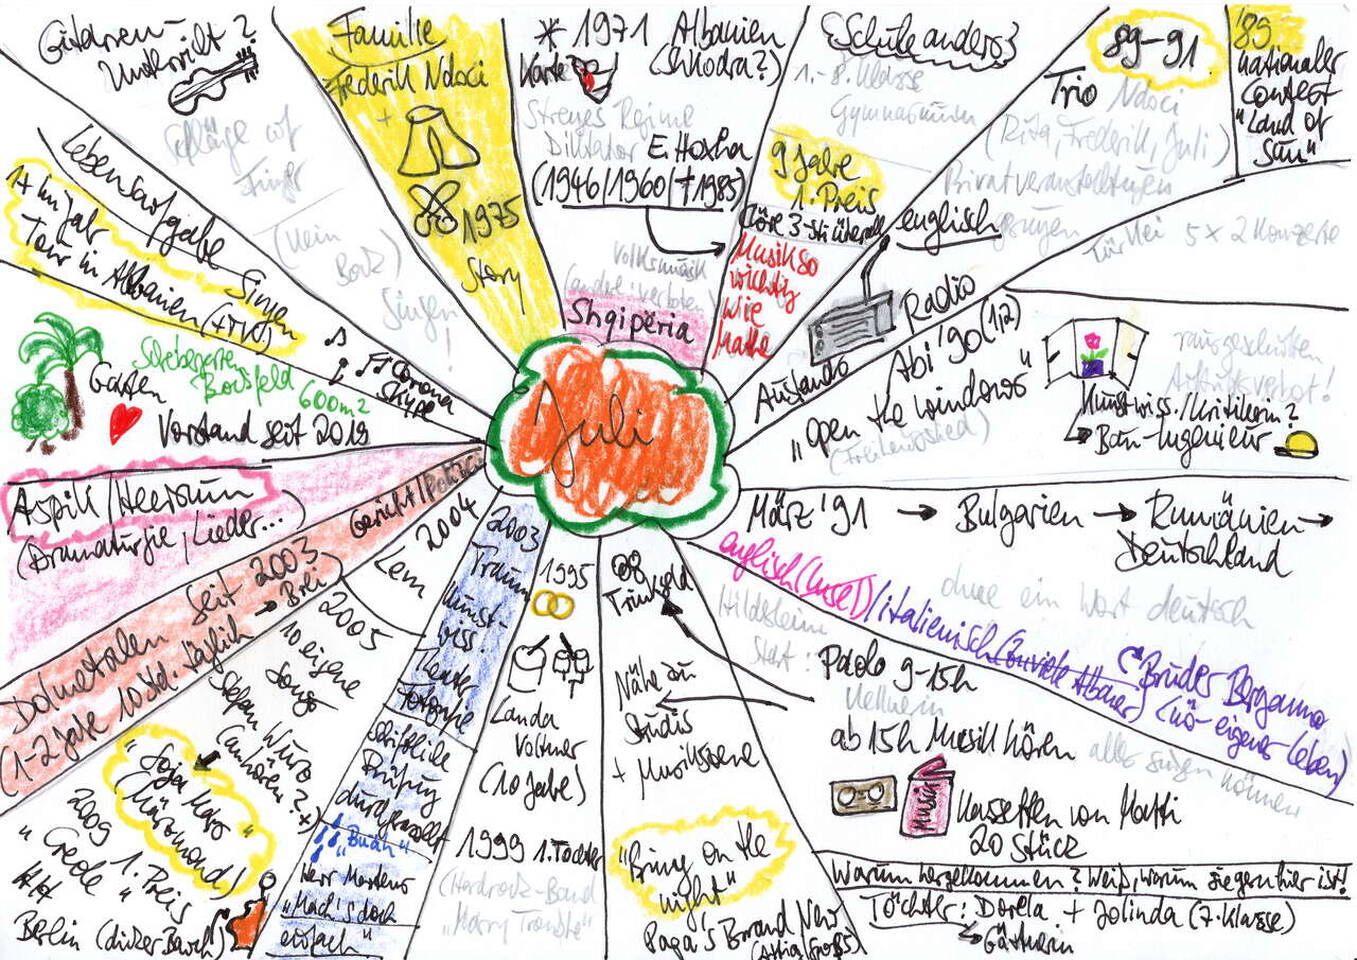 Juli
Gitarren
Unterricht?
Schläge auf
Finger
(kein
Bock)
Singen
!
Familie
Frederik Ndoci
+
1975
Story
* 1971 Albanien
(Shkodra?)
Karte?
Strenges Regime
Diktator E. Hoxha
(1946/1960/†1985)
Volksmusik
(andere: verboten)
Shqipëria
Schule anders?
1.-8. Klasse
Gymnasium
9 Jahre
1. Preis
Chöre 3-stü überall
Musik so
wichtig
wie
Mathe
englisch
Radio
Ausland
89-91
Trio Ndoci
(Rita, Frederik, Juli)
Privatveranstaltungen
gesungen
für Nei 5x2 Konzerte
'89
nationaler
Contest
"Land of
Sun"
Abi '90 (1,2)
"open the windows"
(Freiheitslied)
rausgeschnitten
Auftrittsverbot!
Kunstwiss./Kritikerin?
Bau-Ingenieur
März '91 → Bulgarien → Rumänien →
Deutschland
ohne ein Wort deutsch
englisch (Insel)/italienisch (soviele Albaner)
Bruder Bergamo
(nö- eigenes Leben)
Hildesheim
Start: Paolo 9-15h
Kellnerin
ab 15h Musik hören
alles singen
können
Musik
Kassetten von Matti
20 Stück
Warum hergekommen? Weiß, warum sie gern hier ist!
Töchter: Dorela + Jolinda (7. Klasse)
Gärtnerin
Trinkgeld
Nähe zu
Studis
+ Musikszene
"Bring on the
night"
Papa's Brand New
1995
Landa
Vollmer
(10 Jahre)
1999 1. Tochter
(Hardrock-Band
2003
Traum
Kunst-
wiss.
Theater
Fotografie
schriftliche
Prüfung
durchgerasselt
"Buäh"
Herr Mertens
"Mach's doch
einfach"
2004
Lena
2005
10 eigene
Songs
Stefan Wulfo
(anhören?!)
"Goja Mato
(Mürmond)"
2009 1. Preis
"Creole"
Berlin (dicker Bauch!)
Gericht/Polizei
Dolmetschen seit 2003
→ Brei
1-2 Jahre 10 Std. täglich
Aspik/Heersum
(Dramaturgie, Lieder...)
Garten
Schrebergarten
Bousfeld
600m²
Vorstand seit 2019
Lebensaufgabe Singen
1x im Jahr
Tour in Albanien (+TV)
Corona
Skype